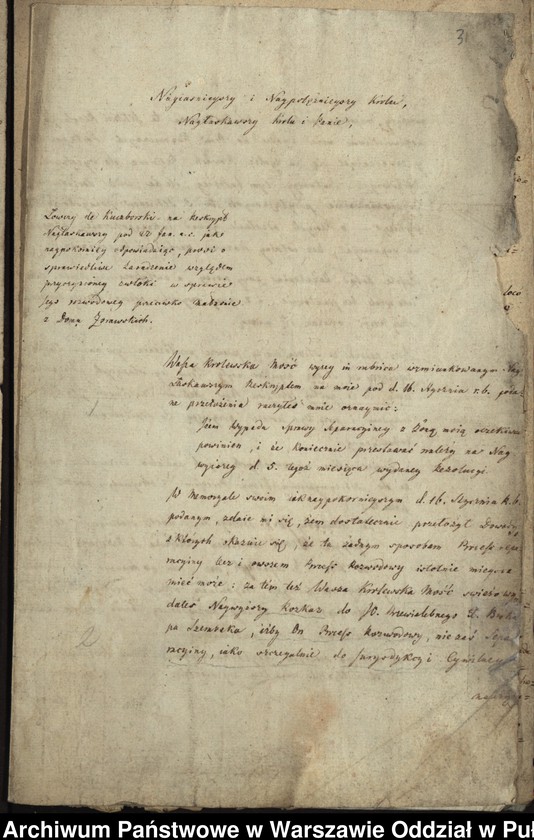 3
Nayiasnieyszy i Naypotężnieyszy Królu,
Nayłaskawszy Królu i Panie,
Xawery de Kuczborski na Reskrypt
Nayłaskawszy pod 22 Jan. a. c. jako
naypokorniey odpowiadaiąc, prosi o
sprawiedliwe zaradzenie względem
przyczynioney zwłoki w sprawie
Jego rozwodowey przeciwko małżonce
z Domu
Wasza Krolewska Mość wyżey in rubrica wzmiankowanym Nay
łaskawszym Reskryptem na moie pod d. 16. Stycznia r. b. poda
ne przełożenia raczyłeś mnie oznaymić:
żem wypadu sprawy Separacyiney z Żoną moią oczekiwać
powinien, i że koniecznie przestawać należy na Nay
wyższey d. 5. tegoż miesiąca wydaney Rezolucyi.
W Memoryale swoim iak naypokornieyszym d. 16. Stycznia r. b.
podanym, zdaie mi się, żem dostatecznie przełożył Dowody
z których okazuie się, że tu żadnym sposobem Process sepa
racyiny lecz i owszem Process Rozwodowy istotnie mieysce
mieć może: za tém też Wasza Krolewska Mość świeżo wy
dałeś Naywyższy Rozkaz do JO. Przewielebnego X. Bisku
pa Szembeka, iżby On Process Rozwodowy, nie zaś Sepa
racyiny, iako szczegulnie do Juryzdykcyi Cywilney
2
loco
Archiwum Państwowe w Warszawie Oddział w Puł